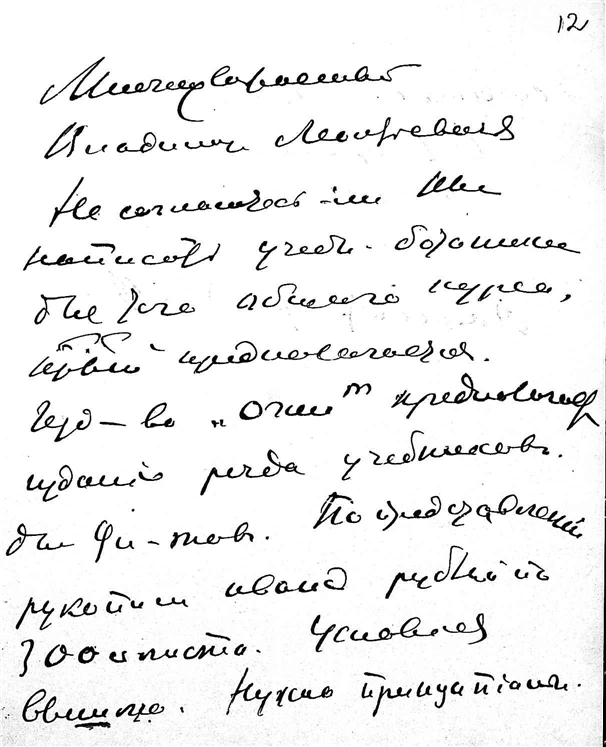 12
Многоуважаемый
Владимир Леонтьевич
Не согласитесь-ли Вы
написать учебн. ботаники
для того общего курса,
предполагается.
Изд-во „Огни" предполаг
издание ряда учебников
для
По представлении
рукописи аванс рублей
300 с листа. Условия
Нужно принципіальн.